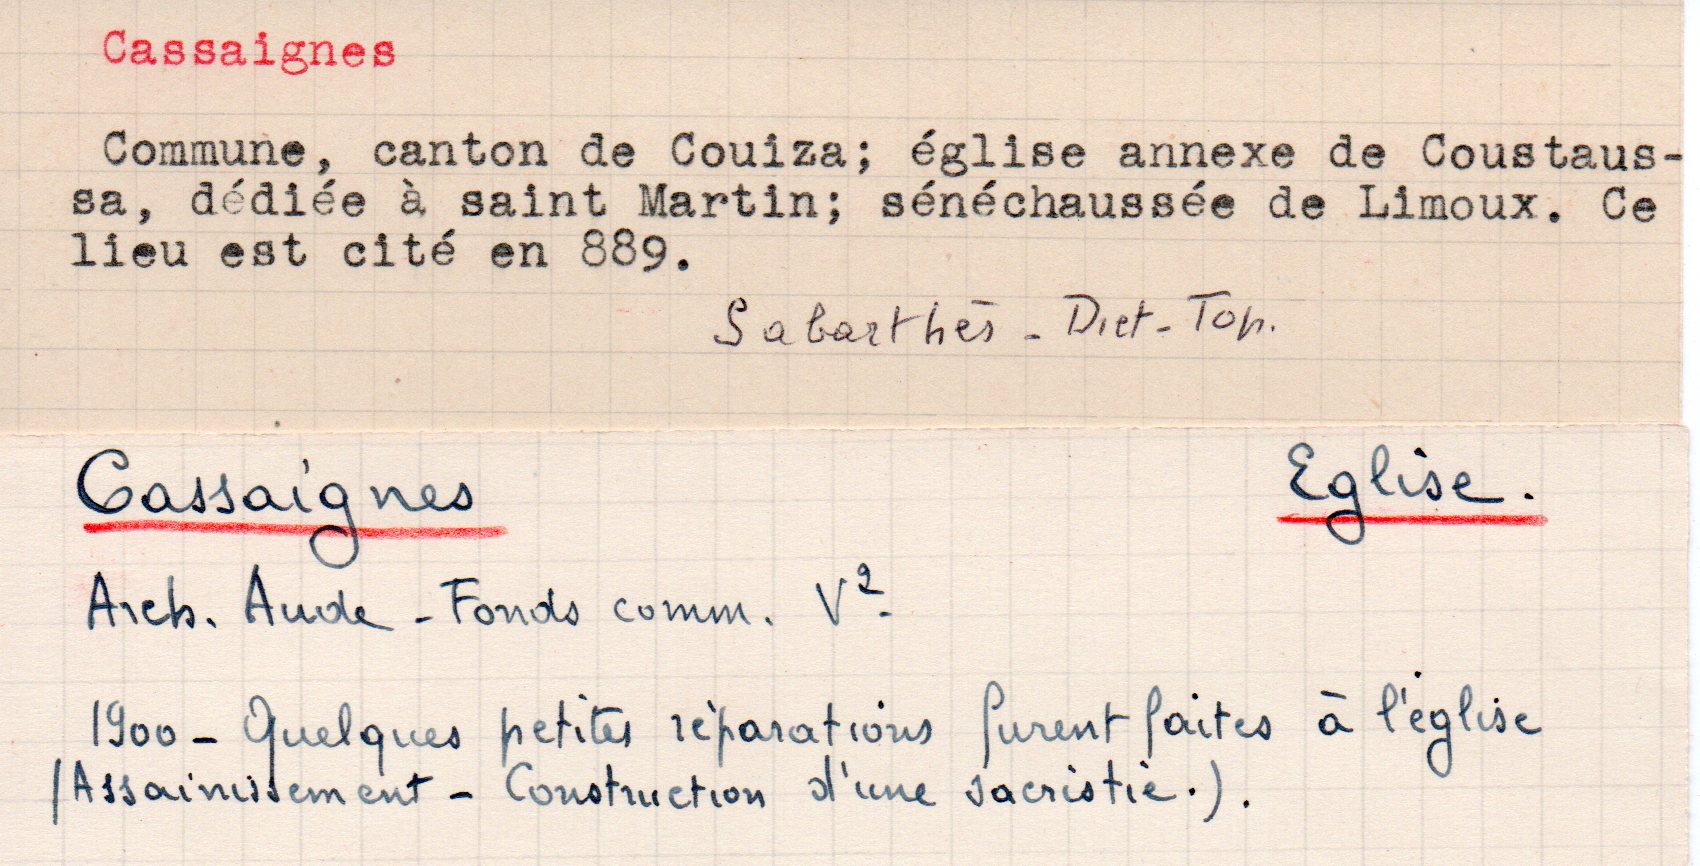 Cassaignes
Commune, canton de Couiza; église annexe de Coustaus-
sa, dédiée à saint Martin; sénéchaussée de Limoux. Ce
lieu est cité en 889.
Sabarthès - Dict - Top.
Cassaignes Eglise.
Arch. Aude - Fonds comm. V2.
1900 - Quelques petites réparations furent faites à l'église
(Assainissement - Construction d'une sacristie.).